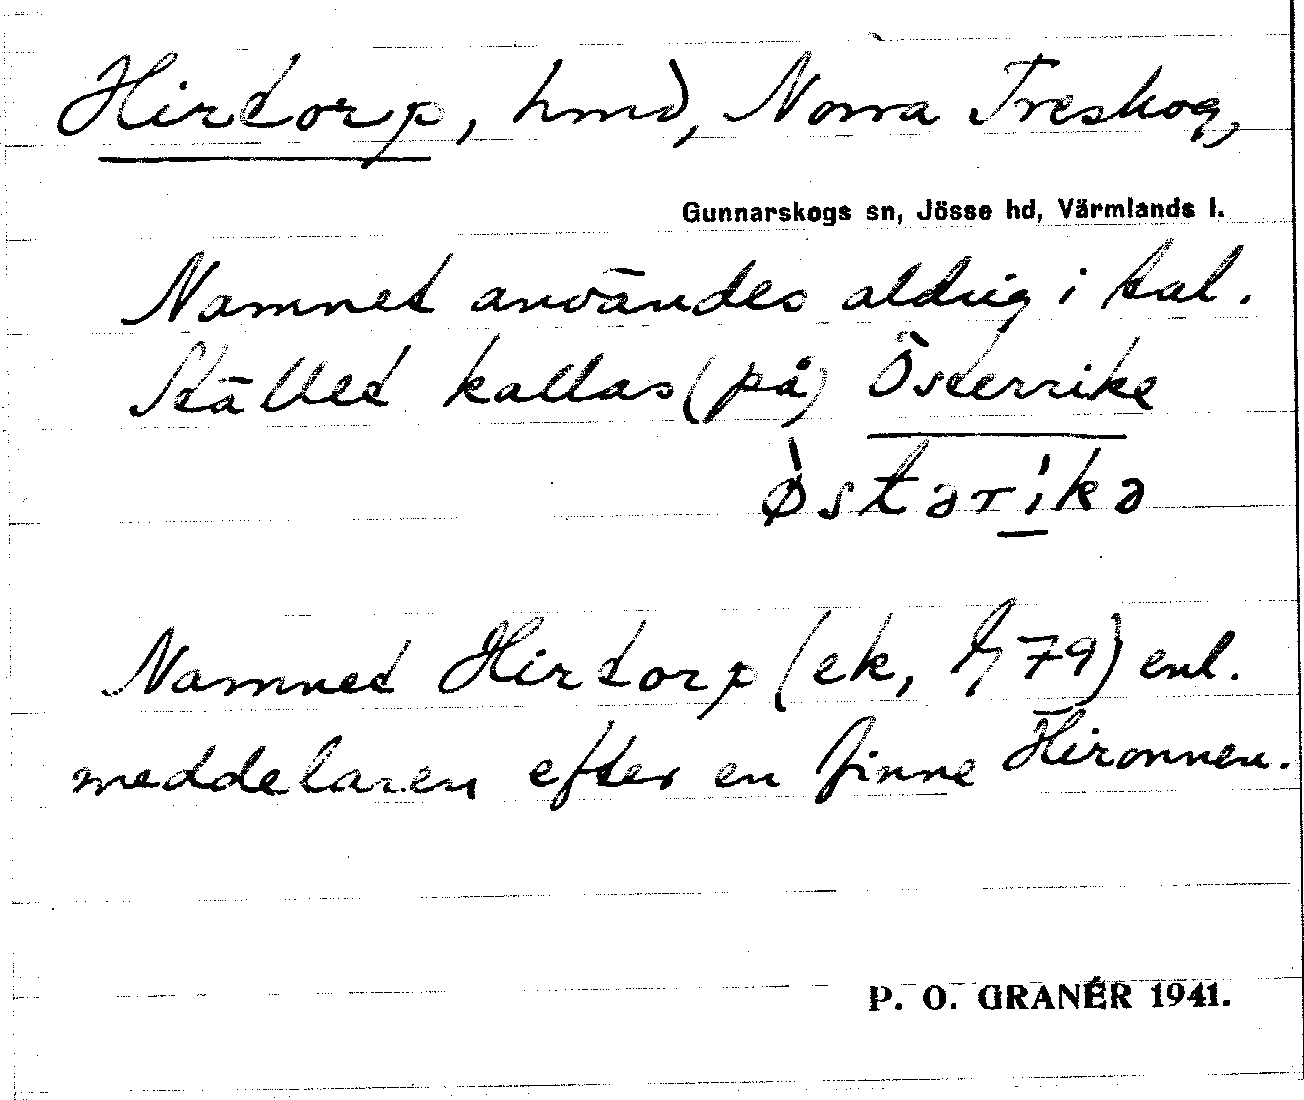 Hirtorp, hmd, Norra Treskog,
Gunnarskogs sn, Jösse hd, Värmlands l.
Namnet användes aldrig i tal.
Stället kallas (på) Österrike
ø̀stəri̱̍kə
Namnet Hirtorp (ek, 79) enl.
meddelaren efter en finne Hironnen.
P. O. GRANÉR 1941.